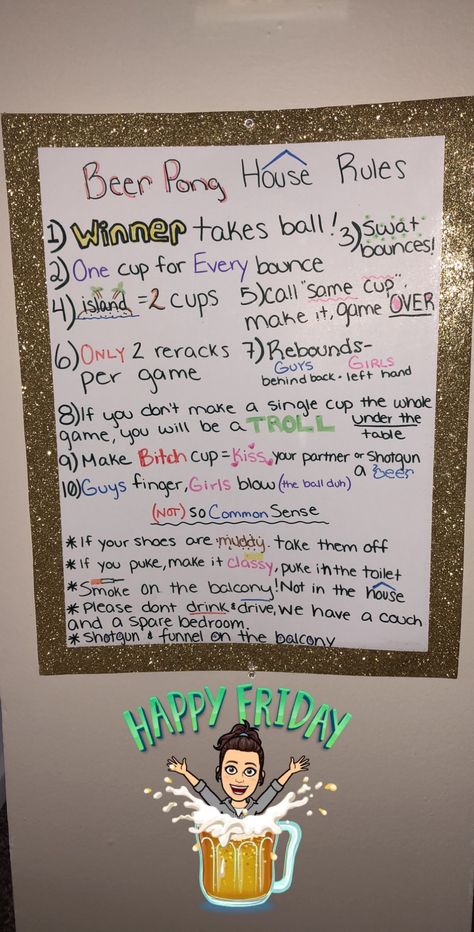 Beer Pong House Rules
1) Winner takes ball!
3) Swat bounces!
2) One cup for Every bounce
4) island = 2 cups
5) call "same cup", make it, game OVER
6) ONLY 2 reracks per game
7) Rebounds-
GUYS GIRLS
behind back • left hand
8) If you don't make a single cup the whole
game, you will be a TROLL under the
table
9) Make Bitch cup = Kiss your partner or Shotgun
a Beer
10) Guys finger, Girls blow (the ball duh)
(NOT) so Common Sense
* If your shoes are muddy. take them off
* If you puke, make it classy, puke in the toilet
* Smoke on the balcony! Not in the house
* Please dont drink & drive, we have a couch
and a spare bedroom.
* Shotgun & funnel on the balcony
HAPPY FRIDAY